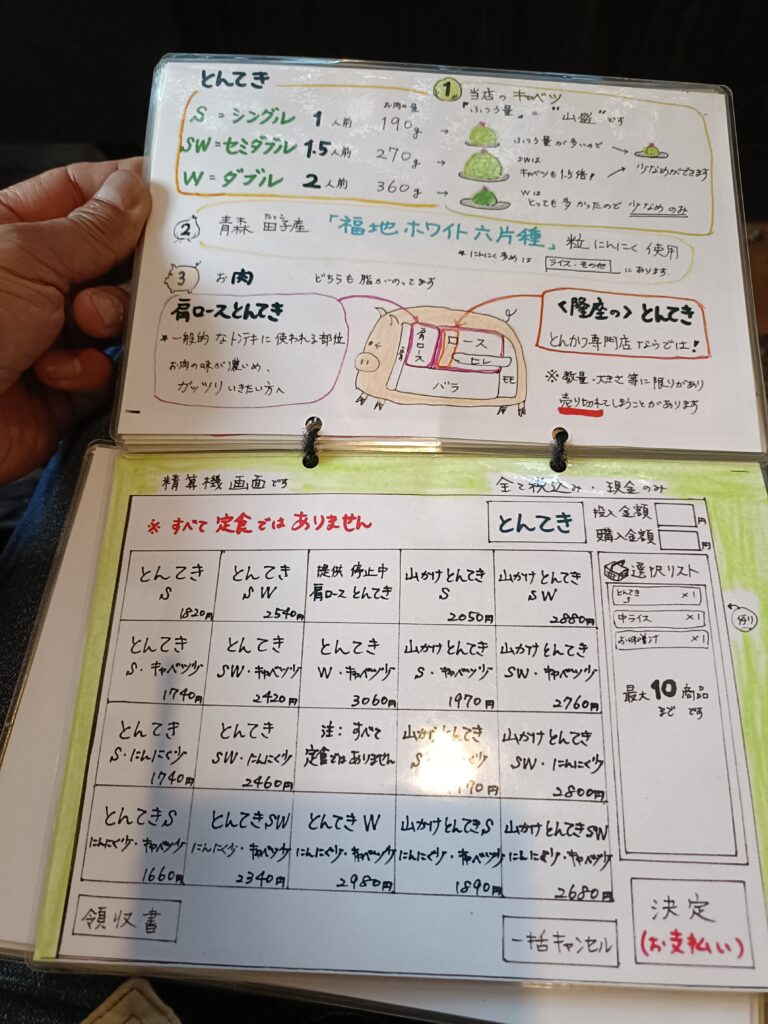 とんてき
S = シングル 1 人前
SW = セミダブル 1.5 人前
W = ダブル 2 人前
お肉の量
190g
270g
360g
1 当店のキャベツ
『ふつう量』=“山盛”です
ふつう量が多いので
少なめができます
SWは
キャベツも1.5倍!
Wは
とっても多かったので 少なめのみ
2 青森 田子産 「福地ホワイト六片種」 粒にんにく使用
たっこ
*にんにく多めは ライス・その他 にあります
3 お肉 どちらも脂がのってます
肩ロースとんてき
*一般的なトンテキに使われる部位
お肉の味が濃いめ、
ガッツリいきたい方へ
肩
肩ロース
ロース
ヒレ
バラ
モモ
〈隆座の〉とんてき
とんかつ専門店ならでは!
※数量・大きさ等に限りがあり
売り切れてしまうことがあります
精算機画面です
全て税込み・現金のみ
※すべて定食ではありません
とんてき
投入金額 円
購入金額 円
とんてき
S
1820円
とんてき
SW
2540円
提供停止中
肩ロースとんてき
山かけとんてき
S
2050円
山かけとんてき
SW
2880円
とんてき
S・キャベツ少
1740円
とんてき
SW・キャベツ少
2420円
とんてき
W・キャベツ少
3060円
山かけとんてき
S・キャベツ少
1970円
山かけとんてき
SW・キャベツ少
2760円
とんてき
S・にんにく少
1740円
とんてき
SW・にんにく少
2460円
注:すべて
定食ではありません
山かけとんてき
S
70円
山かけとんてき
SW・にんにく少
2800円
とんてきS
にんにく少・キャベツ少
1660円
とんてきSW
にんにく少・キャベツ少
2340円
とんてきW
にんにく少・キャベツ少
2980円
山かけとんてきS
にんにく少・キャベツ少
1890円
山かけとんてきSW
にんにく少・キャベツ少
2680円
選択リスト
とんてき
S ×1
中ライス ×1
お味噌汁 ×1
例)
最大10商品
までです
領収書
一括キャンセル
決定
(お支払い)